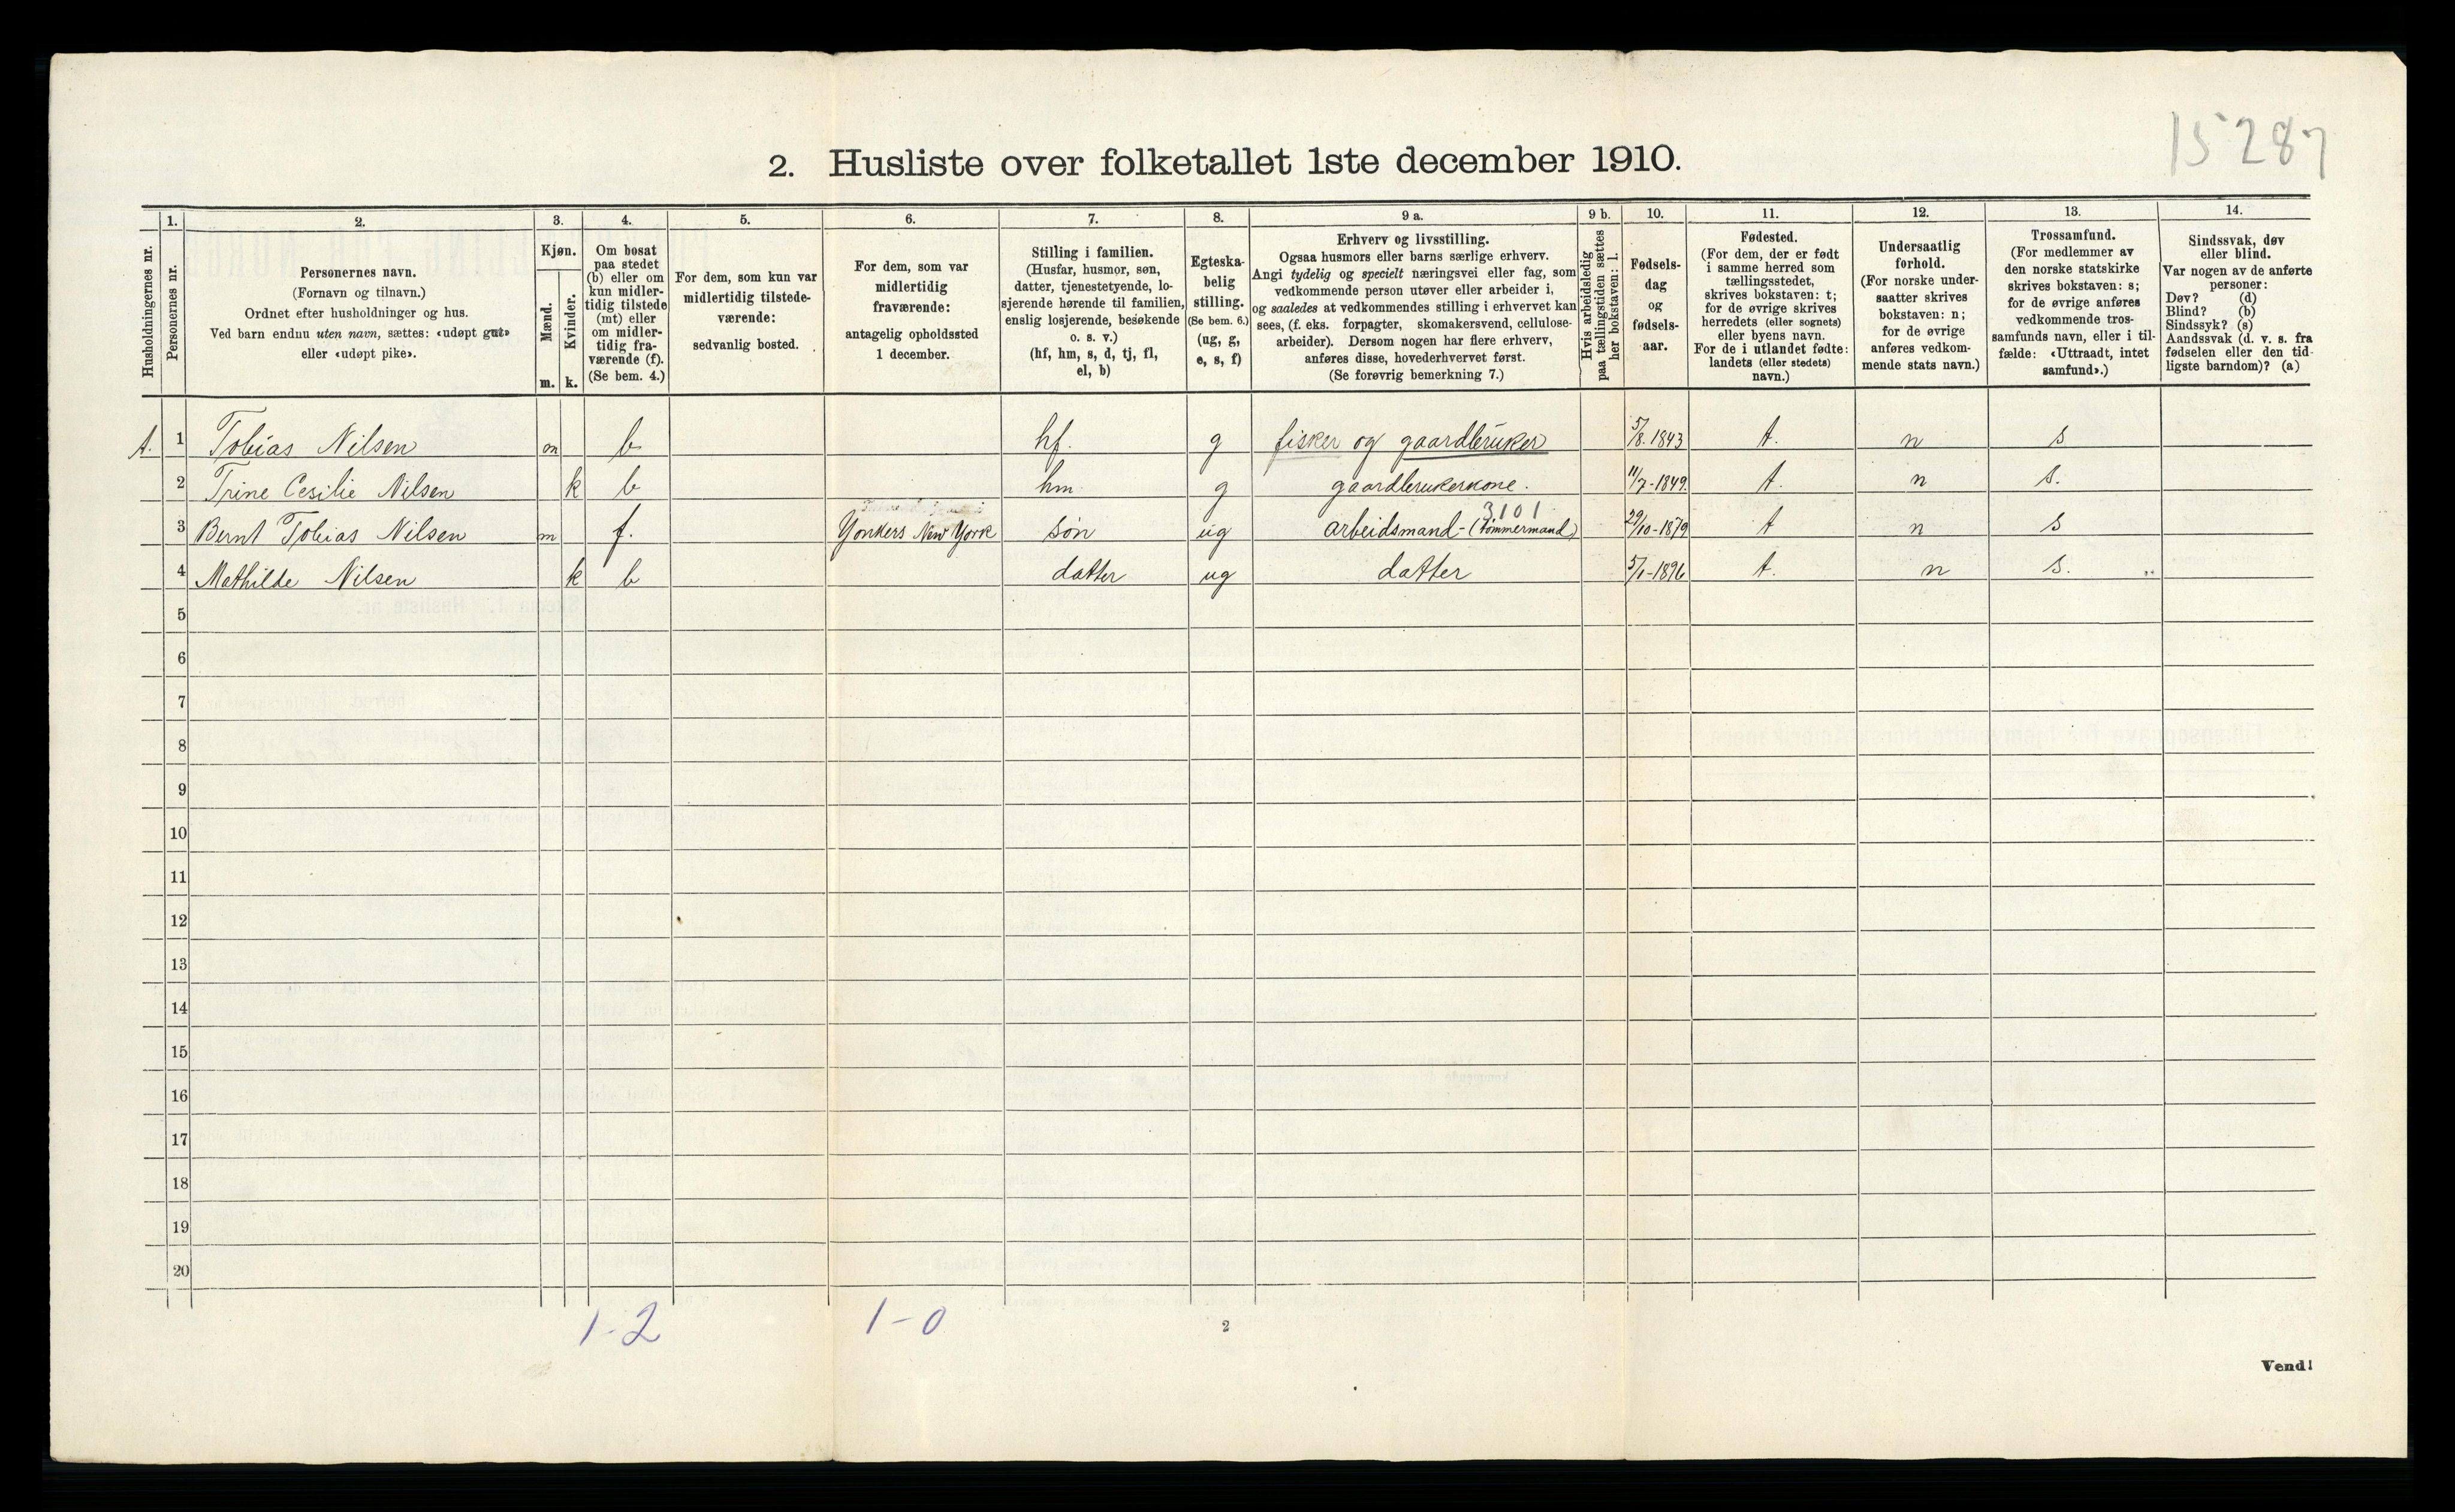 15287
2. Husliste over folketallet 1ste december 1910.
Husholdningernes nr.
1.
Personernes nr.
2.
Personernes navn.
(Fornavn og tilnavn.)
Ordnet efter husholdninger og hus.
Ved barn endnu uten navn, sættes: «udøpt gut»
eller «udøpt pike».
3.
Kjøn.
Mænd.
m.
Kvinder.
k.
4.
Om bosat
paa stedet
(b) eller om
kun midler-
tidig tilstede
(mt) eller
om midler-
tidig fra-
værende (f).
(Se bem. 4.)
5.
For dem, som kun var
midlertidig tilstede-
værende:
sedvanlig bosted.
6.
For dem, som var
midlertidig
fraværende:
antagelig opholdssted
1 december.
7.
Stilling i familien.
(Husfar, husmor, søn,
datter, tjenestetyende, lo-
sjerende hørende til familien,
enslig losjerende, besøkende
o. s. v.)
(hf, hm, s, d, tj, fl,
el, b)
8.
Egteska-
belig
stilling.
(Se bem. 6.)
(ug, g,
e, s, f)
9 a.
Erhverv og livsstilling.
Ogsaa husmors eller barns særlige erhverv.
Angi tydelig og specielt næringsvei eller fag, som
vedkommende person utøver eller arbeider i,
og saaledes at vedkommendes stilling i erhvervet kan
sees, (f. eks. forpagter, skomakersvend, cellulose-
arbeider). Dersom nogen har flere erhverv,
anføres disse, hovederhvervet først.
(Se forøvrig bemerkning 7.)
9 b.
Hvis arbeidsledig
paa tællingstiden sættes
her bokstaven: l.
10.
Fødsels-
dag
og
fødsels-
aar.
11.
Fødested.
(For dem, der er født
i samme herred som
tællingsstedet,
skrives bokstaven: t;
for de øvrige skrives
herredets (eller sognets)
eller byens navn.
For de i utlandet fødte:
landets (eller stedets)
navn.)
12.
Undersaatlig
forhold.
(For norske under-
saatter skrives
bokstaven: n;
for de øvrige
anføres vedkom-
mende stats navn.)
13.
Trossamfund.
(For medlemmer av
den norske statskirke
skrives bokstaven: s;
for de øvrige anføres
vedkommende tros-
samfunds navn, eller i til-
fælde: «Uttraadt, intet
samfund».)
14.
Sindssvak, døv
eller blind.
Var nogen av de anførte
personer:
Døv? (d)
Blind? (b)
Sindssyk? (s)
Aandssvak (d. v. s. fra
fødselen eller den tid-
ligste barndom)? (a)
1 Tobias Nilsen m b hf. g fisker og gaardbruker 5/8.1843 t. n s
2 Trine Cesilie Nilsen k b hm g gaardbrukerkone. 11/7-1849. t. n s.
3101
3 Bernt Tobias Nilsen m f. Yonkers New York søn ug arbeidsmand-(tømmermand) 29/10-1879 t n s
4 Mathilde Nilsen k b datter ug datter 5/1-1896 t. n s.
5
6
7
8
9
10
11
12
13
14
15
16
17
18
19
20
1-2
1-0
2
Vend!